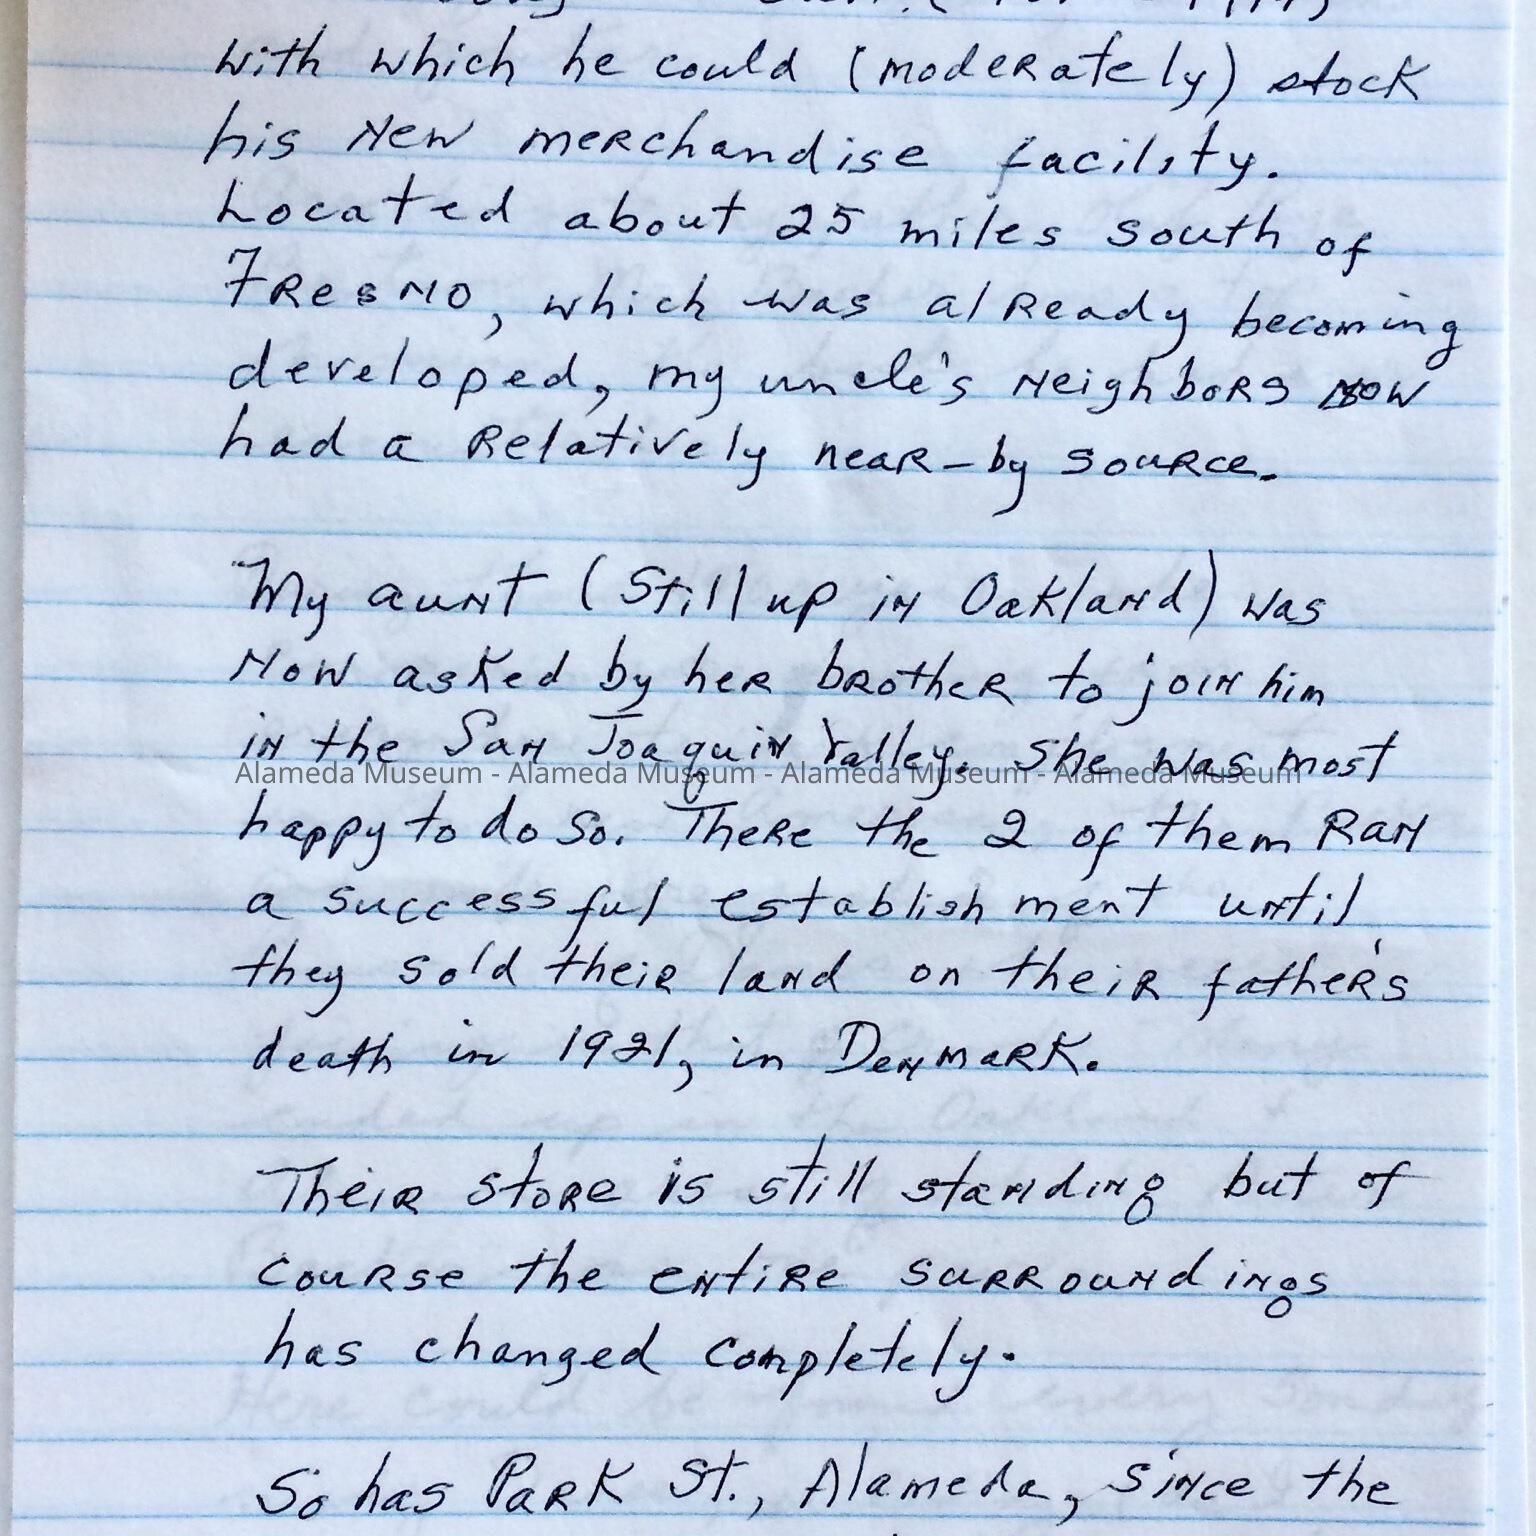 with which he could (moderately) stock
his new merchandise facility.
Located about 25 miles south of
Fresno, which was already becoming
developed, my uncle's neighbors now
had a relatively near-by source.
My aunt (still up in Oakland) was
now asked by her brother to join him
in the San Joaquin Valley. She was most
Alameda Museum - Alameda Museum - Alameda Museum - Alameda Museum
happy to do so. There the 2 of them ran
a successful establishment until
they sold their land on their father's
death in 1921, in Denmark.
Their store is still standing but of
course the entire surroundings
has changed completely.
So has Park St., Alameda, since the